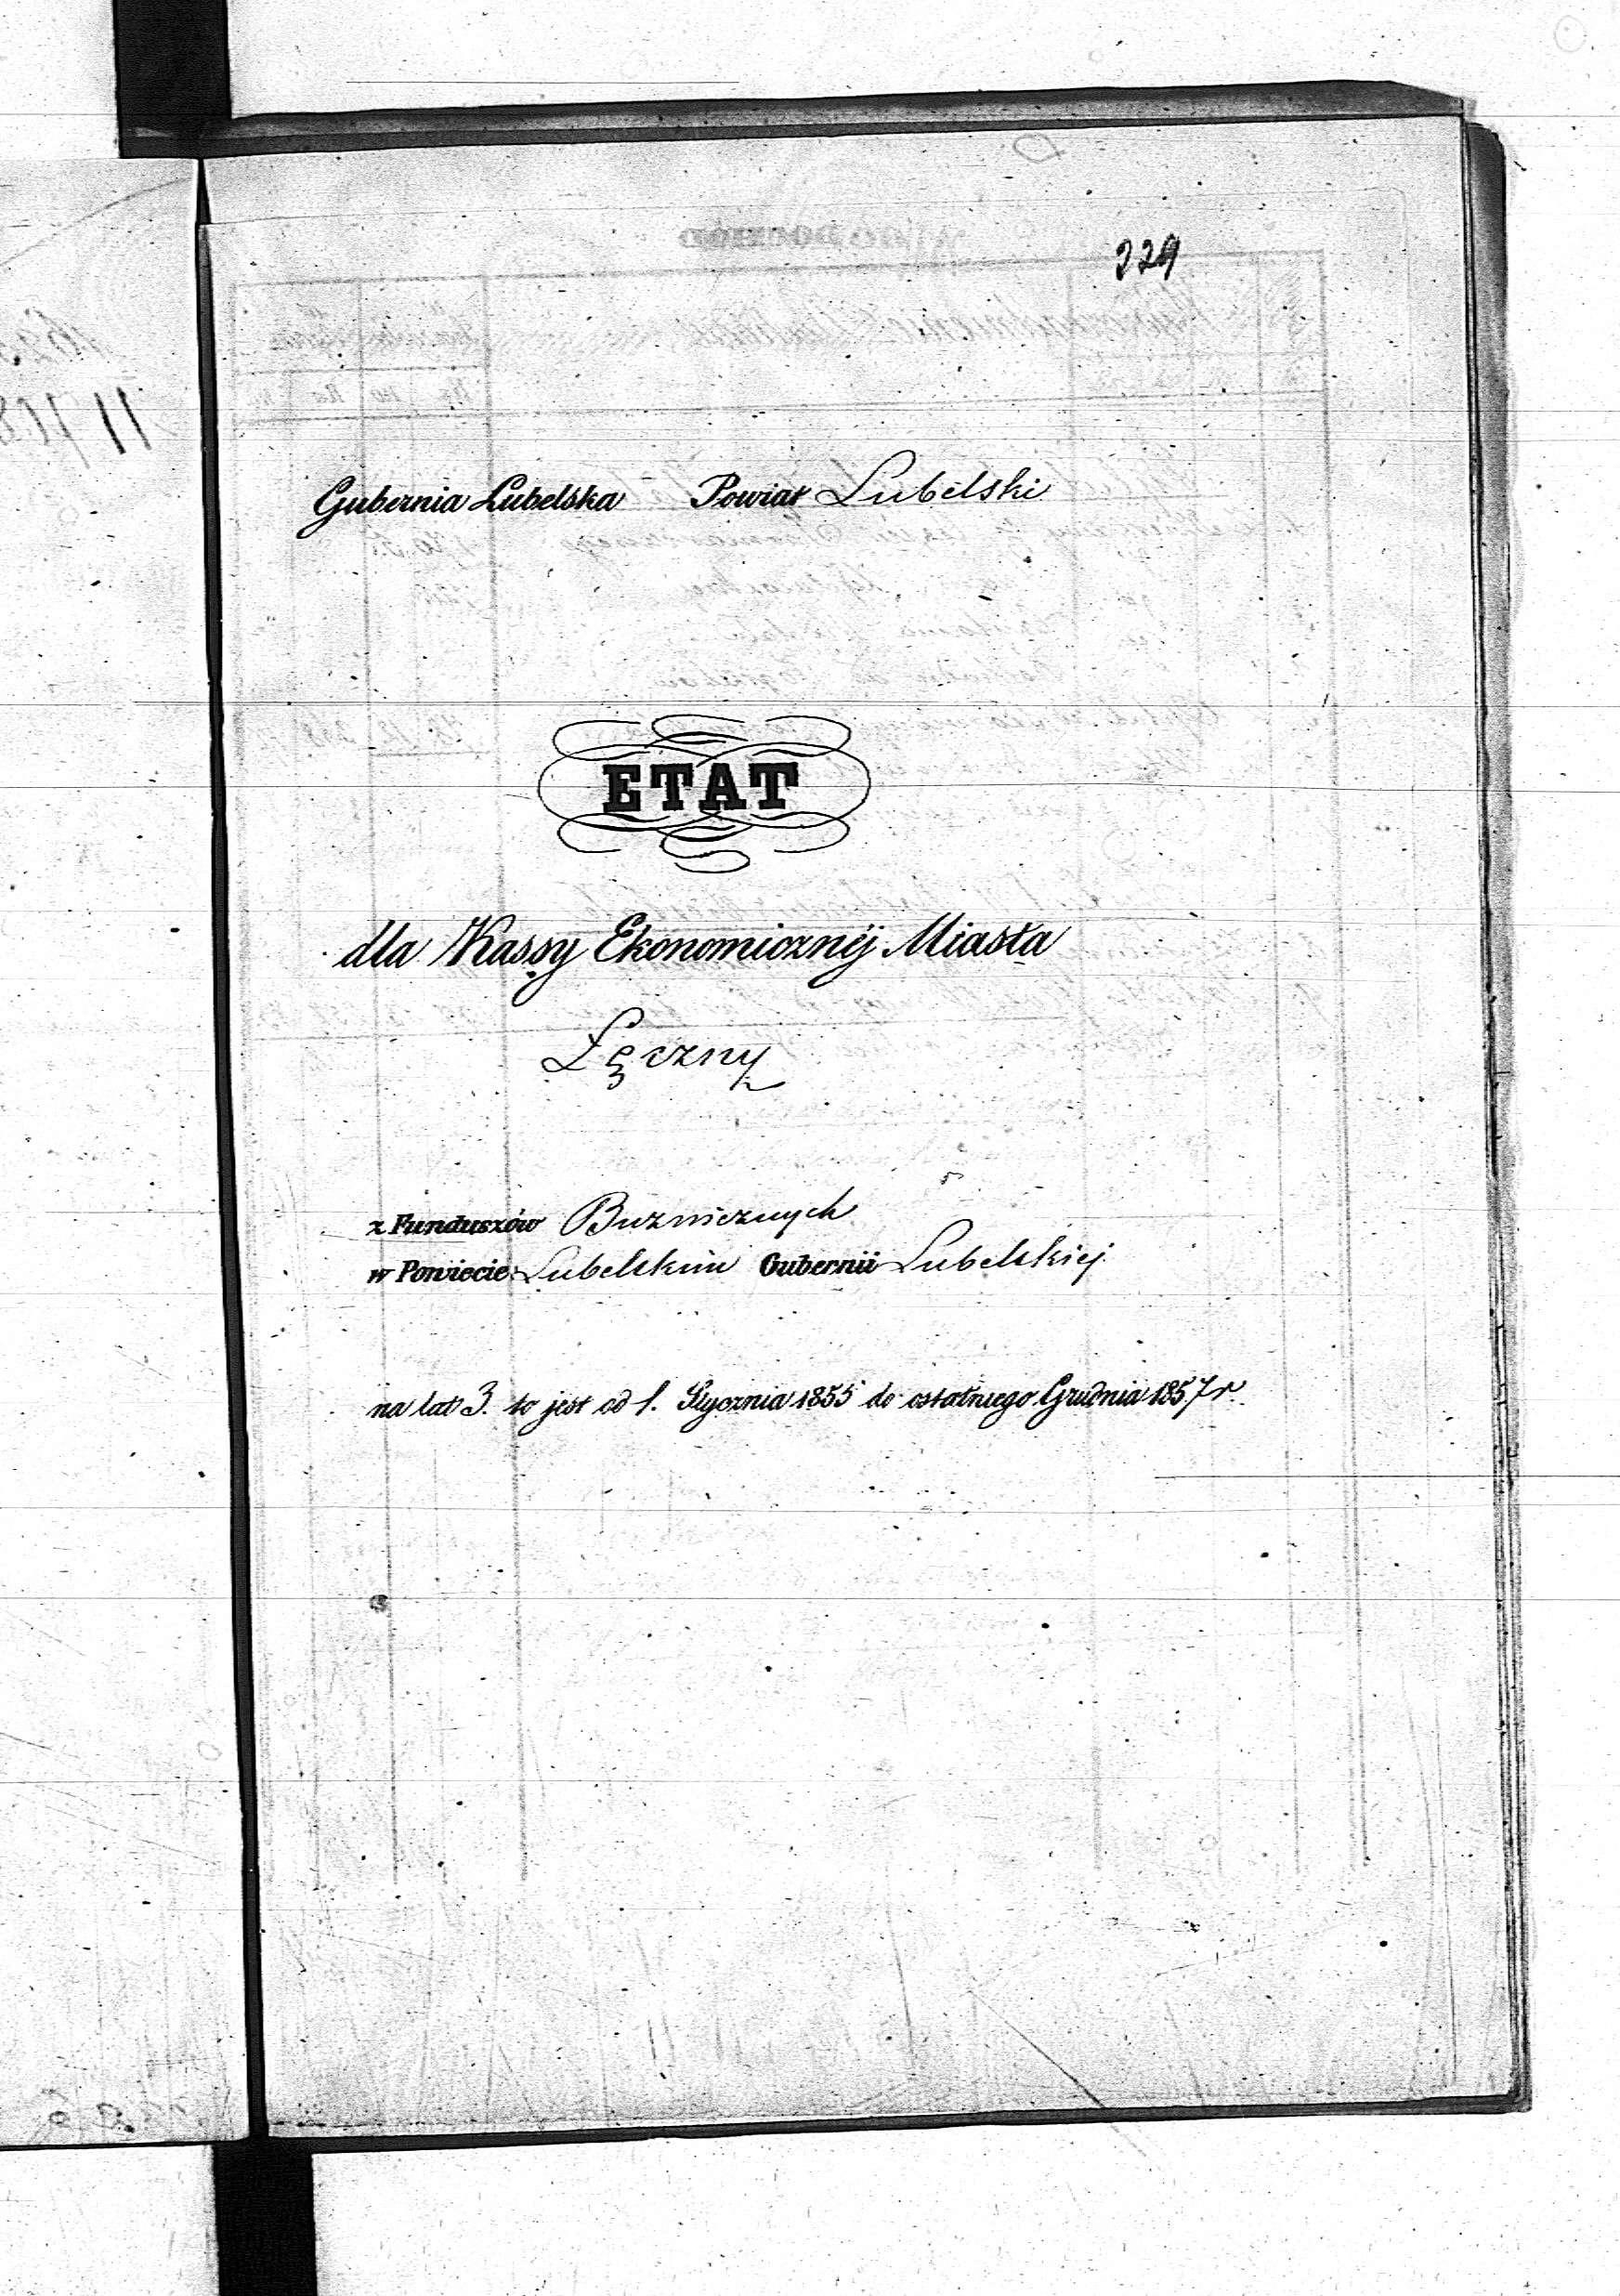 229
Gubernia Lubelska Powiat Lubelski
ETAT
dla Kassy Ekonomicznéj Miasta
Łęczny
z Funduszów Bużnicznych
w Powiecie Lubelskim Gubernii Lubelskiej
na lat 3. to jest od 1. Stycznia 1855 do ostatniego Grudnia 1857 r.